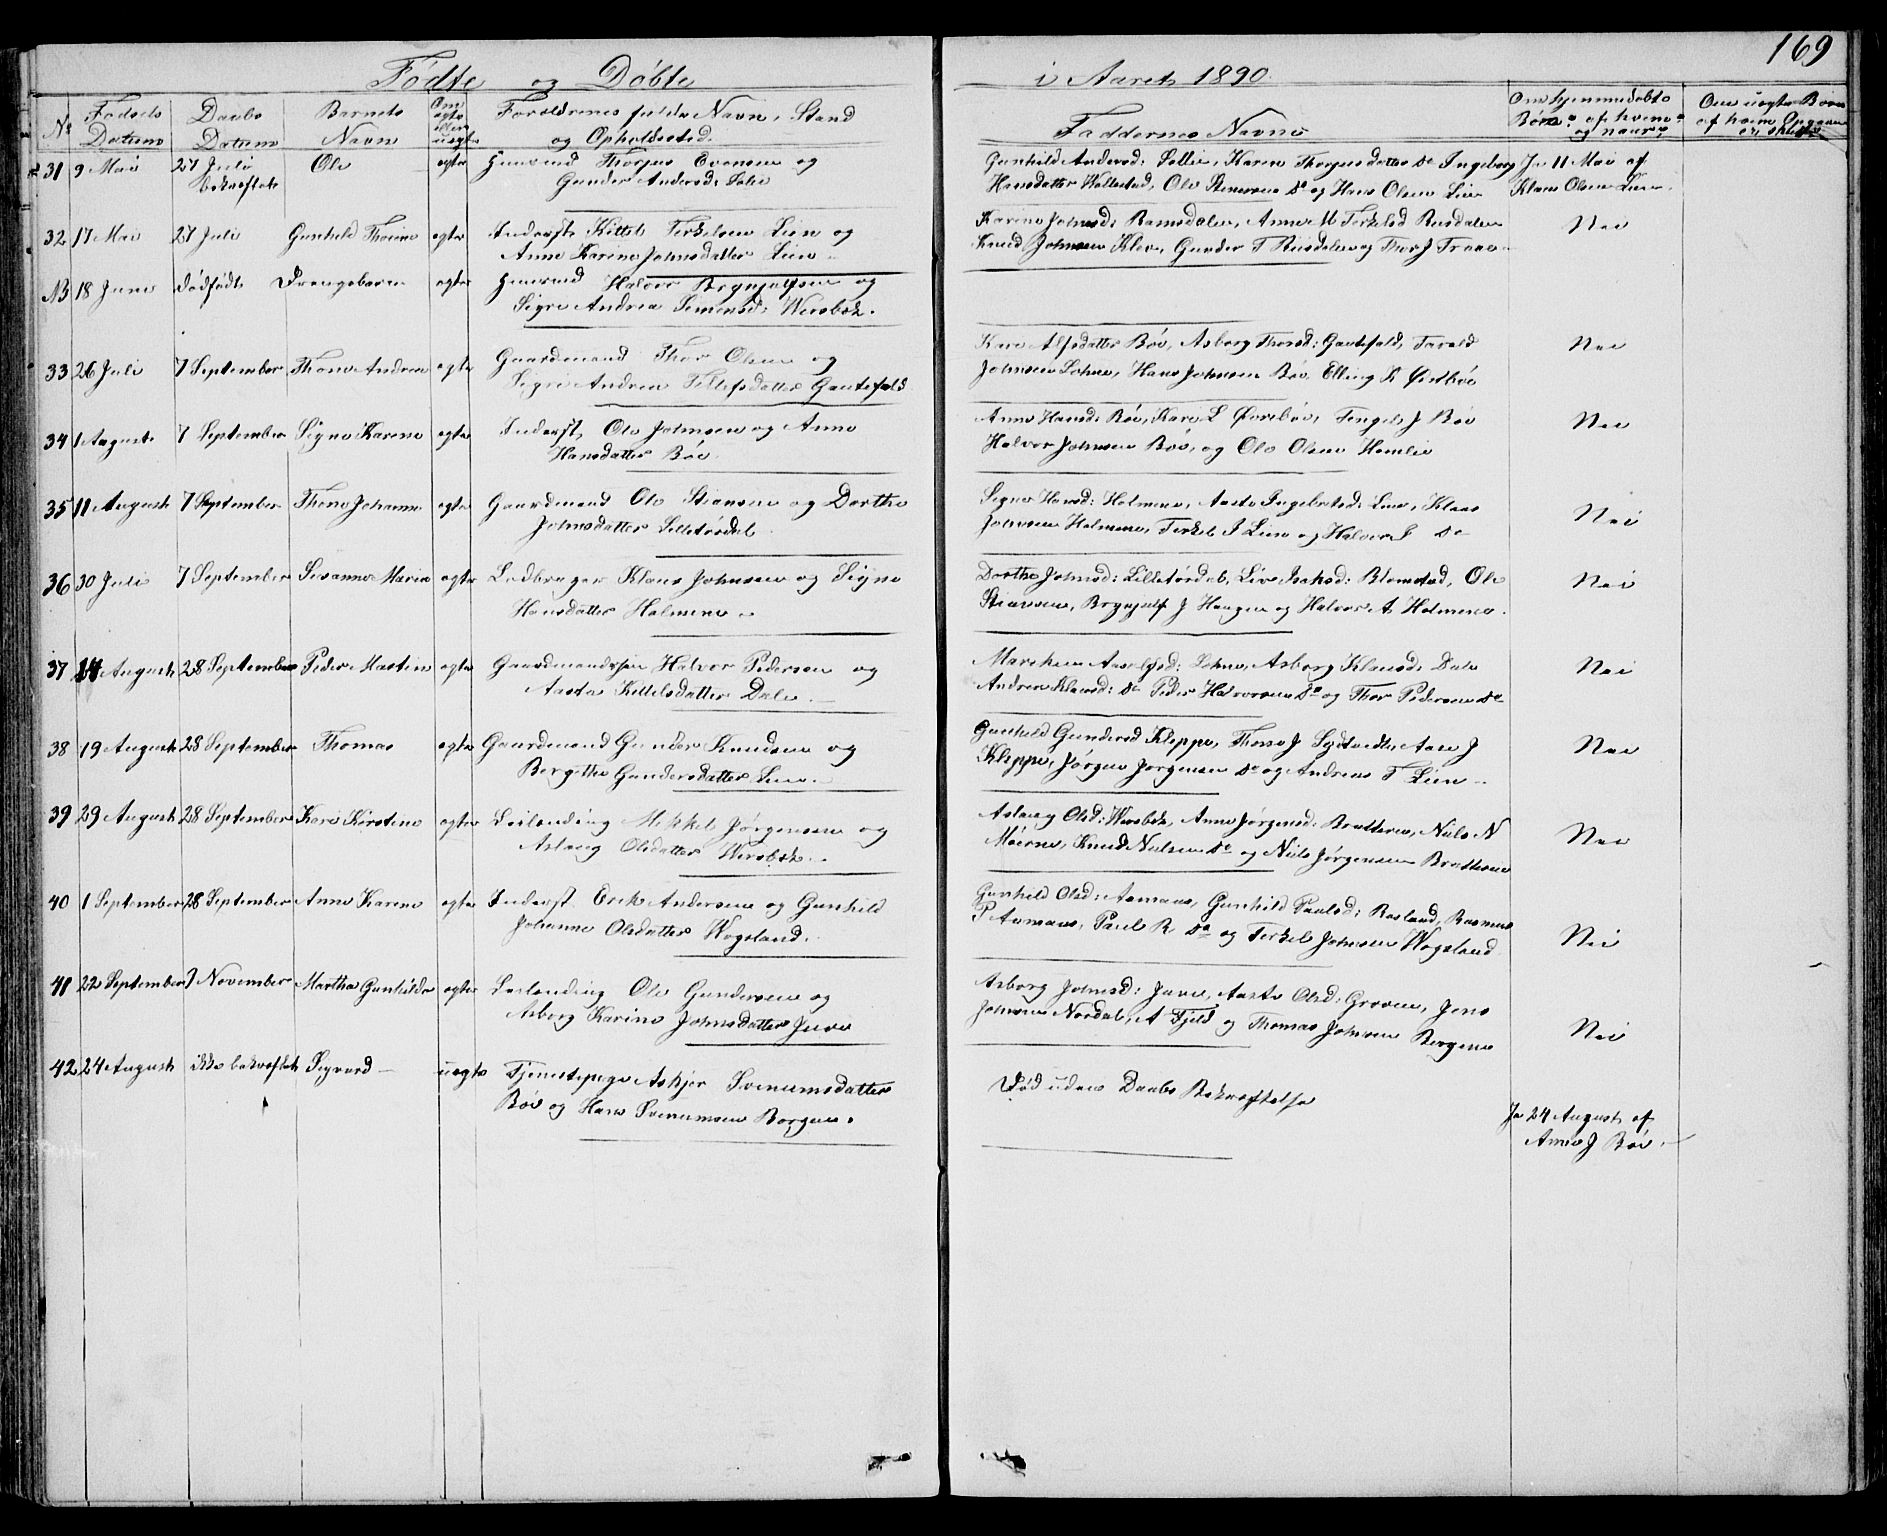 169
Fødte og Døbte i Aaret 1890
No Fødsels Datum Daabs Datum Barnets Navn Om ægte eller uægte Forældrenes fulde Navn, Stand og Opholdssted Faddernes Navne Om hjemmedøbte Børn af hvem og naar Om uægte Børn af hvem
31 9 Mai 27 Juli Ole ægte Huusmand Thorjus Evensen og
bekræftet Gunder Andersd: Solie
Gunhild Andersd: Sollie, Karen Thorjusdatter Do Ingeborg Ja 11 Mai af
Hansdatter Ole Stenersen Do og Hans Olsen Lien Klaus Olsen Lien.
32 17 Mai 27 Juli Gunhild Thorine ægte Inderst Kittel Terkelsen Lien og
Anne Karine Johnsdatter Lien
Karine Johnsd: Ramsdalen, Anne M Terkelsd Rusdalen Nei
Knud Johnsen Klev, Gunder T Rusdalen og Thor J Traae
NB 18 Juni dødfødt Drengebarn ægte Huusmand Halvor Brynjulfsen og
Sigri Andrea Simensd: Weesbøk.
33 26 Juli 7 September Thone Andrea ægte Gaardmand Thor Olsen og
Sigri Andrea Tellefsdatter Gautefald
Kari Alfsdatter Bøe, Asborg Thorsd: Gautefald, Tarald Nei
Johnsen Lohne, Hans Johnsen Bøe, Elling K Østbøe
34 1 August 7 September Signe Karene ægte Inderst, Ole Johnsen og Anne
Hansdatter Bøe.
Anne Hansd: Bøe, Kare L Øvrebøe, Tengel J Bøe Nei
Halvor Johnsen Bøe, og Ole Olsen Homlie
35 11 August 7 September Thone Johanne ægte Gaardmand Ole Stiansen og Dorthe
Johnsdatter Lilletørdal.
Signe Hansd: Holmene, Aaste Ingebretsd: Lien, Klaus Nei
Johnsen Holmene, Terkel J Lien og Halvor J Do
36 30 Juli 7 September Susanne Marie ægte Ledbruger Klaus Johnsen og Signe
Hansdatter Holmene.
Dorthe Johnsd: Lilletørdal, Live Isaksd: Blomstad, Ole Nei
Stiansen, Brynjulf J Haugen og Halvor A Holmene.
37 14 August 28 September Peder Martin ægte Gaardmandssøn Halvor Pedersen og
Aaste Kittelsdatter Dale.
Marthe Lohne, Asborg Klausd: Dale Nei
Andrea Klausd: Do Peder Halvorsen Do og Thor Pedersen Do
38 19 August 28 September Thomas ægte Gaardmand Gunder Knudsen og
Bergithe Gundersdatter Lien.
Gunhild Gundersd Kleppe, Thone J Sydtvedt, Aase J Nei
Kleppe, Jørgen Jørgensen Do og Andreas T Lien
39 29 August 28 September Kari Kirstine ægte Leilending Mikkel Jørgensen og
Aslaug Olsdatter Weesbøk.
Aslaug Olsd: Weesbøk, Anne Jørgensd: Bratterne, Niels N Nei
Moerne, Knud Nielsen Do og Niels Jørgensen Bratterne
40 1 September 28 September Anne Karine ægte Inderst. Erik Andersen og Gunhild
Johanne Olsdatter Wogsland.
Gunhild Olsd: Aamaas, Gunhild Paulsd: Rosland, Rasmus Nei
P Aamaas, Paul R. Do og Terkel Johnsen Wogsland.
41 22 September 7 November Marthe Gunhilde ægte Leilending Ole Gundersen og
Asborg Karine Johnsdatter Juve
Asborg Johnsd: Juve, Aaste Olsd: Groven, Jens Nei
Johnsen Nordal, A Fjeld og Thomas Johnsen Bergene
42 24 August ikke bekræftet Sigvard uægte Tjenestepige Askjer Svenumsdatter
Bøe og Hans Svenumsen Borgen.
Død uden Daabs Bekræftelse
Ja 24 August af
Anne J Bøe.